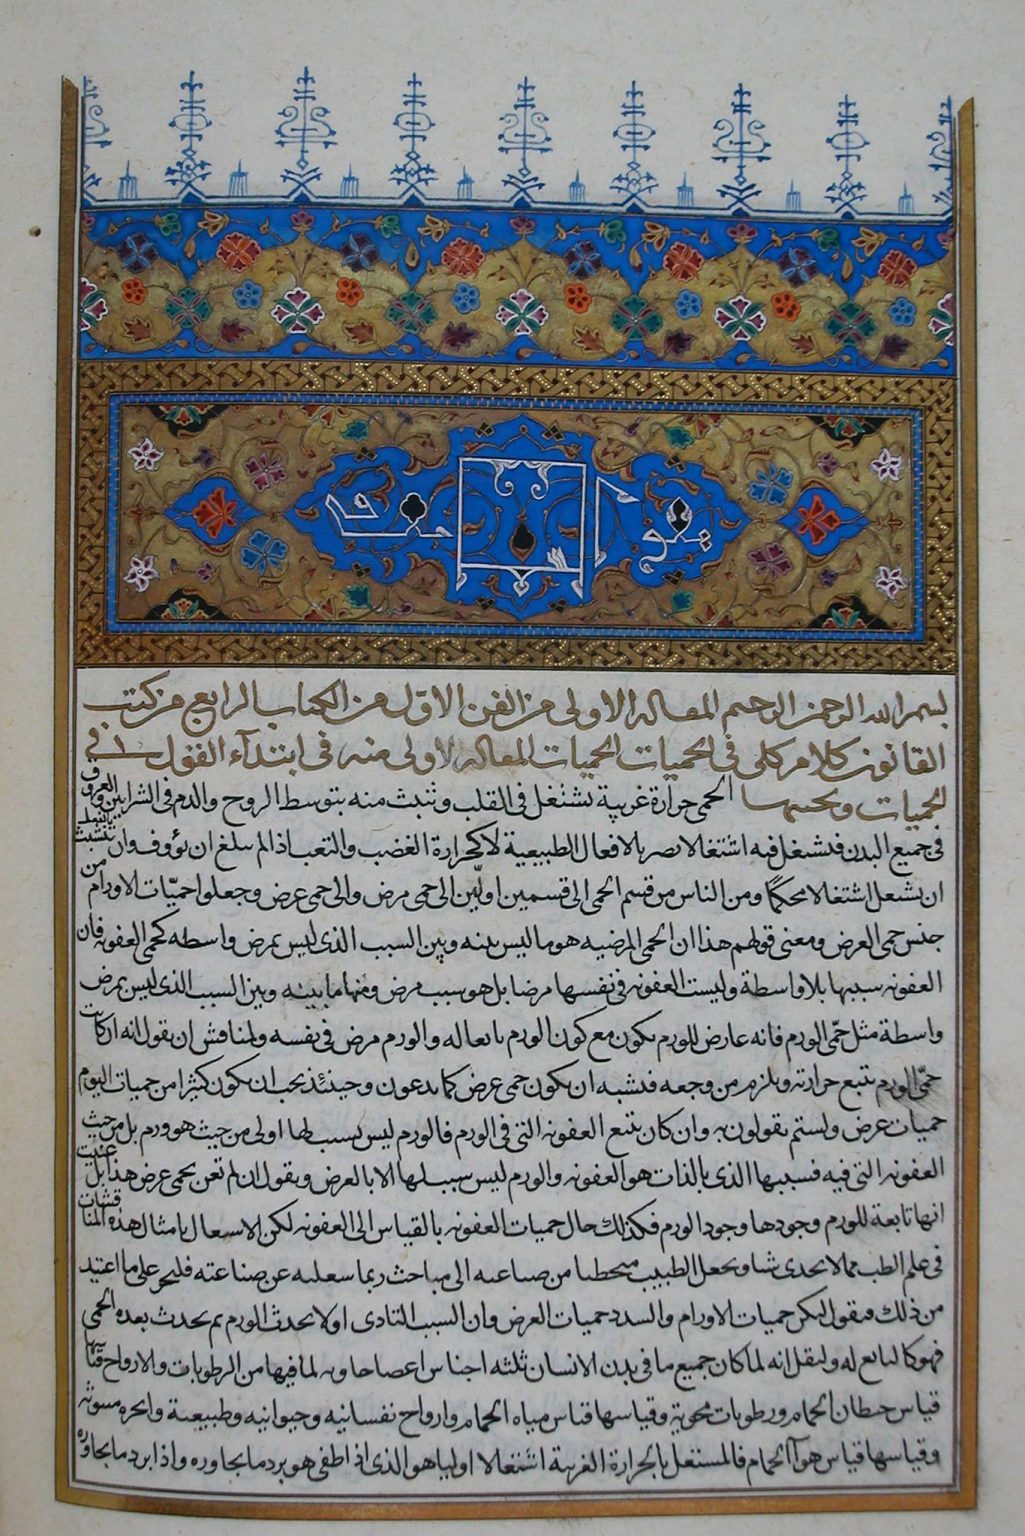 بسم الله الرحمن الرحيم المقالة الاولى من الفن الاوّل من الكتاب الرابع من كتب
القانون كلام كلى فى الحميات الحميات المقالة الاولى منه فى ابتدآء القول فى
الحميات وبحسبها الحمى حرارة غريبة تشتغل فى القلب وتنبث منه بتوسط الروح والدم فى الشرايين والعروق
فى جميع البدن فتشتغل فيه اشتغالا يضر بالافعال الطبيعية لا كحرارة الغضب والتعب اذا لم تبلغ ان تؤوف وان تتشبث بالفعل
ان تشعل اشتغالا محكما ومن الناس من قسم الحمى الى قسمين اولّين الى حمى مرض والى حمى عرض وجعلوا حميّات الاورام من
جنس حمى العرض ومعنى قولهم هذا ان الحمى المرضيه هو ما ليس بينه وبين السبب الذى ليس بمرض واسطه كحمى العفونه فان
العفونه سببها بلا واسطة وليست العفونه فى نفسها مرضا بل هو سبب مرض ومنها ما بينه وبين السبب الذى ليس بمرض
واسطة مثل حمّى الورم فانه عارض للورم يكون مع كون الورم تابعا له والورم مرض فى نفسه ولمناقش ان يقول انه ان كانت
حمّى الورم تتبع حرارته ويلزم من وجعه فيشبه ان يكون حمى عرض كما يدعون وحينئذ يجب ان يكون كثيرا من حميات اليوم
حميات عرض ولستم تقولون به وان كان تتبع العفونه التى فى الورم فالورم ليس بسبب لها اولى من حيث هو ورم بل من حيث
العفونه التى فيه فسببها الذى بالذات هو العفونه والورم ليس سببا لها الا بالعرض ويقول ان لم تعن بحمى عرض هذا بل عنيت
انها تابعة للورم وجودها وجود الورم فكذلك حال حميات العفونه بالقياس الى العفونه لكن الاشتغال بامثال هذه المناقشات
فى علم الطب مما لا يجدى شيا ويجعل الطبيب متخطيا من صناعته الى مباحث ربما شغلته عن صناعته فليجر على ما اعتيد
من ذلك فنقول ليكن حميات الاورام والسدد حميات العرض وان السبب التادى اولا يحدث الورم ثم يحدث بعده الحمى
فهو كالتابع له ولنقل انه لما كان جميع ما فى بدن الانسان ثلثه اجناس اعضا حاويه لما فيها من الرطوبات والارواح قياسها
قياس حيطان الحمام ورطوبات محوية وقياسها قياس مياه الحمام وارواح نفسانيه وحيوانيه وطبيعية وابخره مبثوثه
وقياسها قياس هوآ الحمام فالمشتعل بالحرارة الغريبة اشتعالا اوليا هو الذى اذا طفى هو برد ما يجاوره واذا برد ما يجاوره